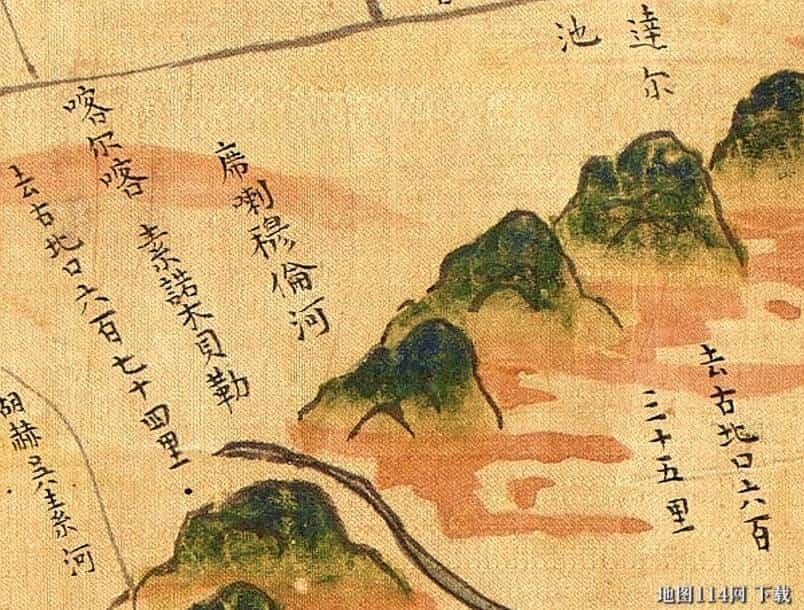 達尔
池
去古北口六百
三十五里
席喇穆倫河
喀尔喀 素諾木貝勒
去古北口六百七十四里
胡赫 河
地图114网 下载